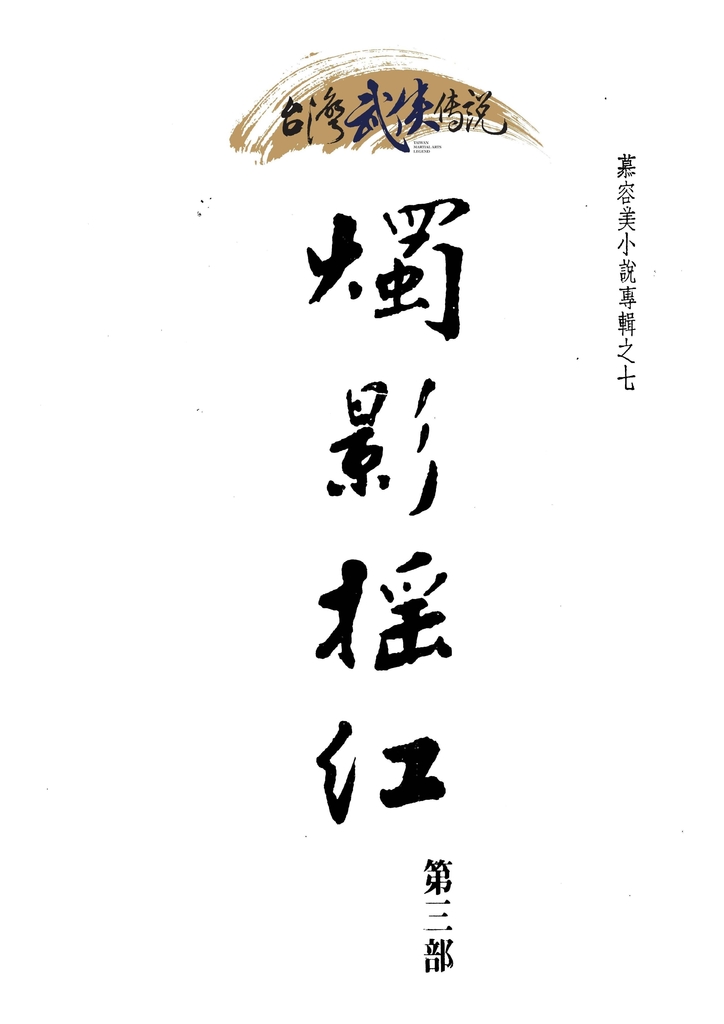 台灣武俠傳説
TAIWAN
MARTIAL ARTS
LEGEND
慕容美小說專輯之七
燭影摇红
第三部